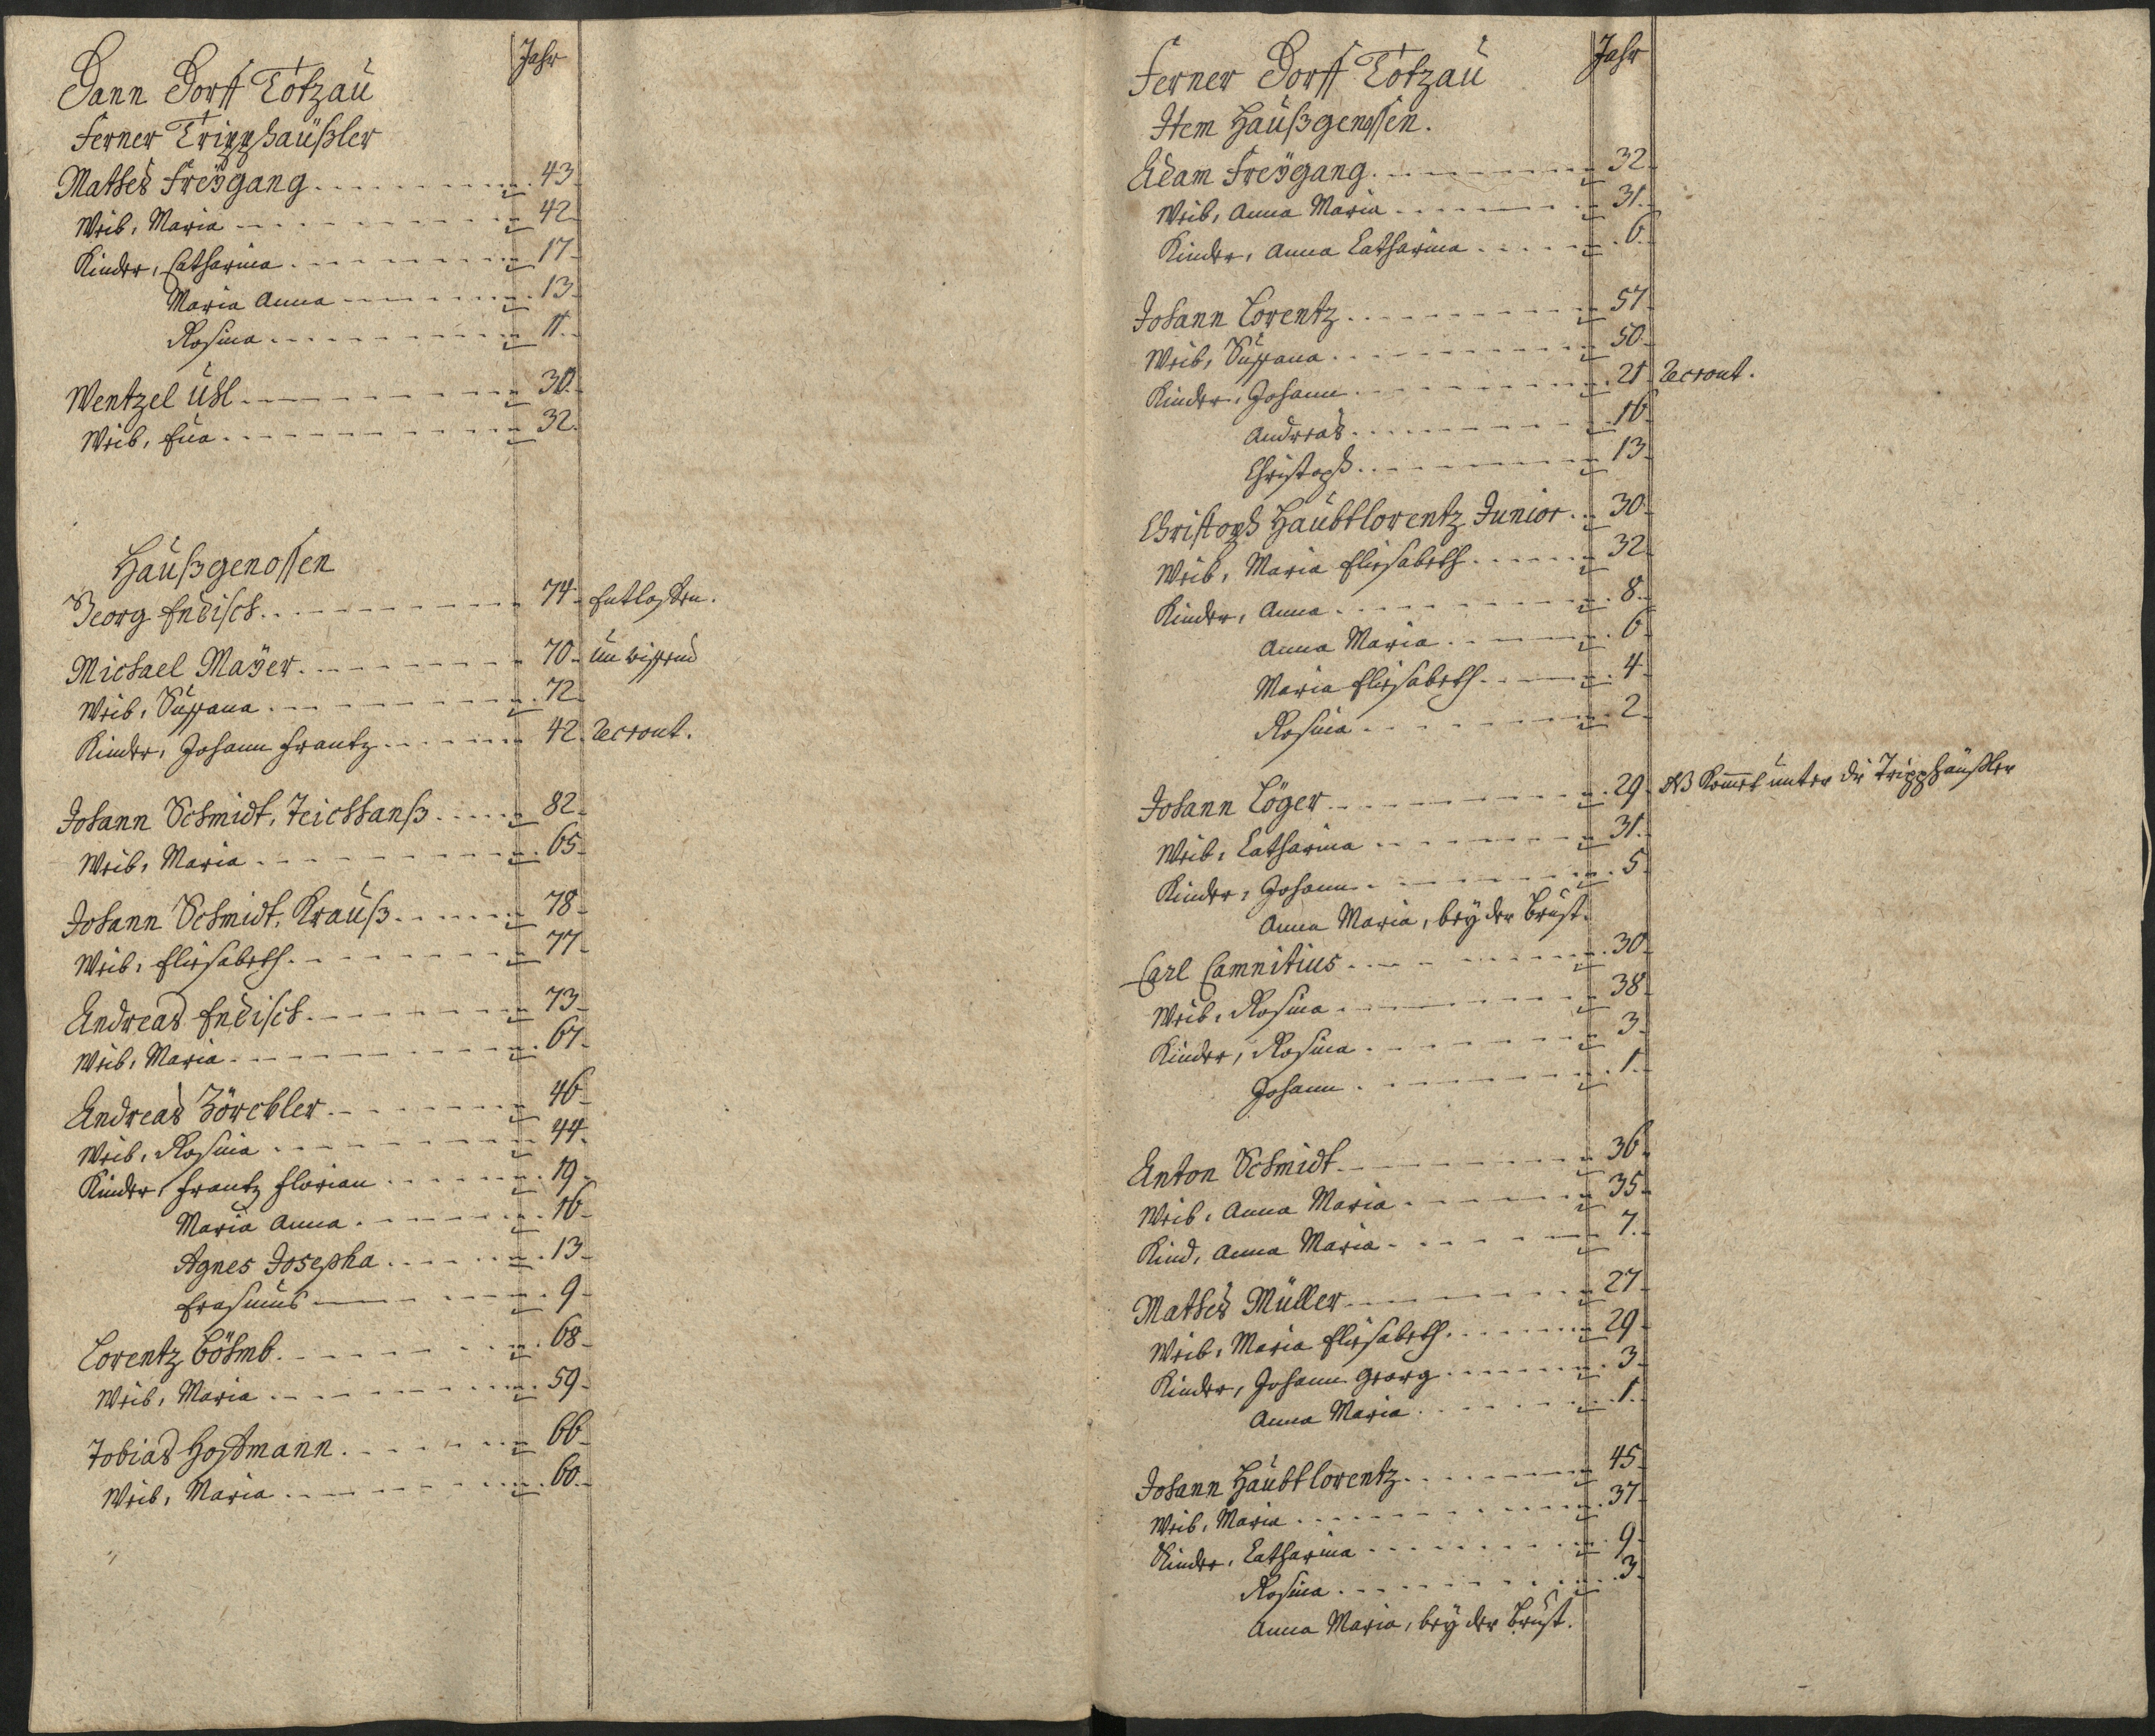 Jahr
Dann Dorff Totzau
Ferner Tripphäußler
Mathes Freÿgang 43
Weib, Maria 42
Kinder, Catharina 17
Maria Anna 13
Rosina 11
Wentzel Uhl 30
Weib, Eva 32
Haußgenossen
Georg Endisch 74 Entlassen.
Michael Maÿer 70
Weib, Susana 72
Kinder, Johann Frantz 42
Johann Schmidt, Teichhanß 82
Weib, Maria 65
Johann Schmidt, Krauß 78
Weib, Elisabeth 77
Andreas Endisch 73
Weib, Maria 67
Andreas Zörckler 46
Weib, Rosina 44
Kinder, Frantz Florian 19
Maria Anna 16
Agnes Josepha 13
Erasmus 9
Lorentz Böhmb 68
Weib, Maria 59
Tobias Hoffmann 66
Weib, Maria 60
Jahr
Ferner Dorff Totzau
Item Haußgenossen.
Adam Freÿgang 32
Weib, Anna Maria 31
Kinder, Anna Catharina 6
Johann Lorentz 57
Weib, Susana 50
Kinder, Johann 21
Andreas 16
Christoph 13
Christoph Haubtlorentz Junior 30
Weib, Maria Elisabeth 32
Kinder, Anna 8
Anna Maria 6
Maria Elisabeth 4
Rosina 2
Johann Löger 29 NB Kom̄et unter die Tripphäußler
Weib, Catharina 31
Kinder, Johann 5
Anna Maria, beÿ der Brust.
Carl Camnitius 30
Weib, Rosina 38
Kinder, Rosina 3
Johann 1
Anton Schmidt 36
Weib, Anna Maria 35
Kind, Anna Maria 7
Mathes Müller 27
Weib, Maria Elisabeth 29
Kinder, Johann Georg 3
Anna Maria 1
Johann Haubtlorentz 45
Weib, Maria 37
Kinder, Catharina 9
Rosina 3
Anna Maria, beÿ der Brust.